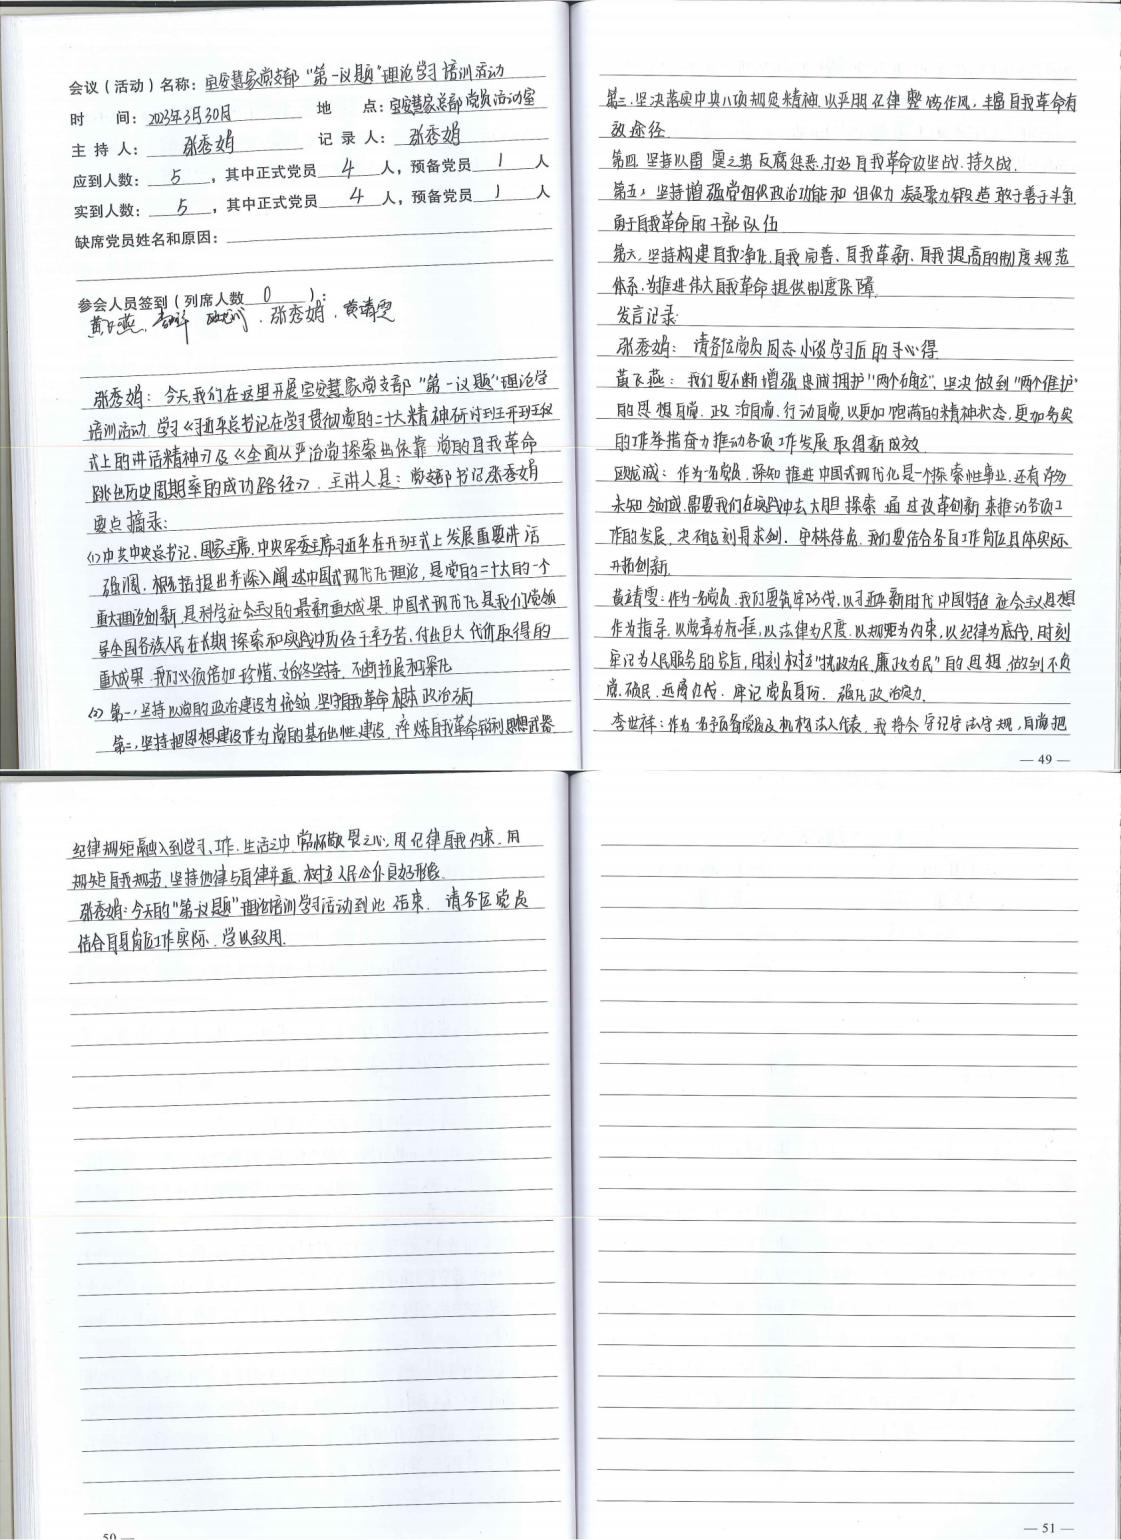 会议（活动）名称：宝安慧家党支部“第一议题”理论学习培训活动
时 间：2023年3月30日 地 点：宝安慧家总部党员活动室
主 持 人：张秀娟 记 录 人：张秀娟
应到人数：5，其中正式党员4人，预备党员1人
实到人数：5，其中正式党员4人，预备党员1人
缺席党员姓名和原因：
参会人员签到（列席人数0）：
黄飞燕、张秀娟、黄靖雯
张秀娟：今天，我们在这里开展宝安慧家党支部“第一议题”理论学
培训活动。学习《习近平总书记在学习贯彻党的二十大精神研讨班开班仪
式上的讲话精神》及《全面从严治党探索出依靠党的自我革命
跳出历史周期率的成功路径》。主讲人是：党支部书记张秀娟
要点摘录：
(1)中共中央总书记、国家主席、中央军委主席习近平在开班式上发展重要讲话
强调，概括提出并深入阐述中国式现代化理论，是党的二十大的一个
重大理论创新，是科学社会主义的最新重大成果。中国式现代化是我们党领
导全国各族人民在长期探索和实践中历经千辛万苦、付出巨大代价取得的
重大成果，我们必须倍加珍惜、始终坚持、不断拓展和深化
(2)第一，坚持以党的政治建设为统领，坚守自我革命根本政治方向
第二，坚持把思想建设作为党的基础性建设，淬炼自我革命锐利思想武器
第三，坚决落实中央八项规定精神，以严明纪律整饬作风，丰富自我革命有
效途径
第四，坚持以雷霆之势反腐惩恶，打好自我革命攻坚战、持久战。
第五，坚持增强党组织政治功能和组织力凝聚力，锻造敢于善于斗争
勇于自我革命的干部队伍
第六，坚持构建自我净化、自我完善、自我革新、自我提高的制度规范
体系，为推进伟大自我革命提供制度保障。
发言记录：
张秀娟：请各位党员同志小谈学习后的心得
黄飞燕：我们要不断增强忠诚拥护“两个确立”、坚决做到“两个维护”
的思想自觉、政治自觉、行动自觉，以更加饱满的精神状态，更加务实
的工作举措奋力推动各项工作发展取得新成效
欧龙诚：作为一名党员，深知推进中国式现代化是一个探索性事业，还有许多
未知领域，需要我们在实践中去大胆探索，通过改革创新来推动各项工
作的发展，决不能刻舟求剑、守株待兔，我们要结合各自工作岗位具体实际
开拓创新
黄靖雯：作为一名党员，我们要筑牢防线，以习近平新时代中国特色社会主义思想
作为指导，以党章为标准，以法律为尺度，以规矩为约束，以纪律为底线，时刻
牢记为人民服务的宗旨，时刻树立“执政为民，廉政为民”的思想，做到不负
党、顾民、远离红线，牢记党员身份，强化政治定力。
李世祥：作为一名预备党员及机构法人代表，我将会守纪守法守规，自觉把
— 49 —
纪律规矩融入到学习、工作、生活之中，常怀敬畏之心，用纪律自我约束，用
规矩自我规范，坚持他律与自律并重，树立人民公仆良好形象。
张秀娟：今天的“第一议题”理论培训学习活动到此结束，请各位党员
结合自身岗位工作实际，学以致用。
50 —
— 51 —